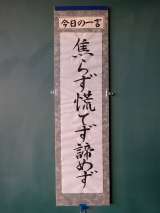 今日の一言
焦らず慌てず諦めず